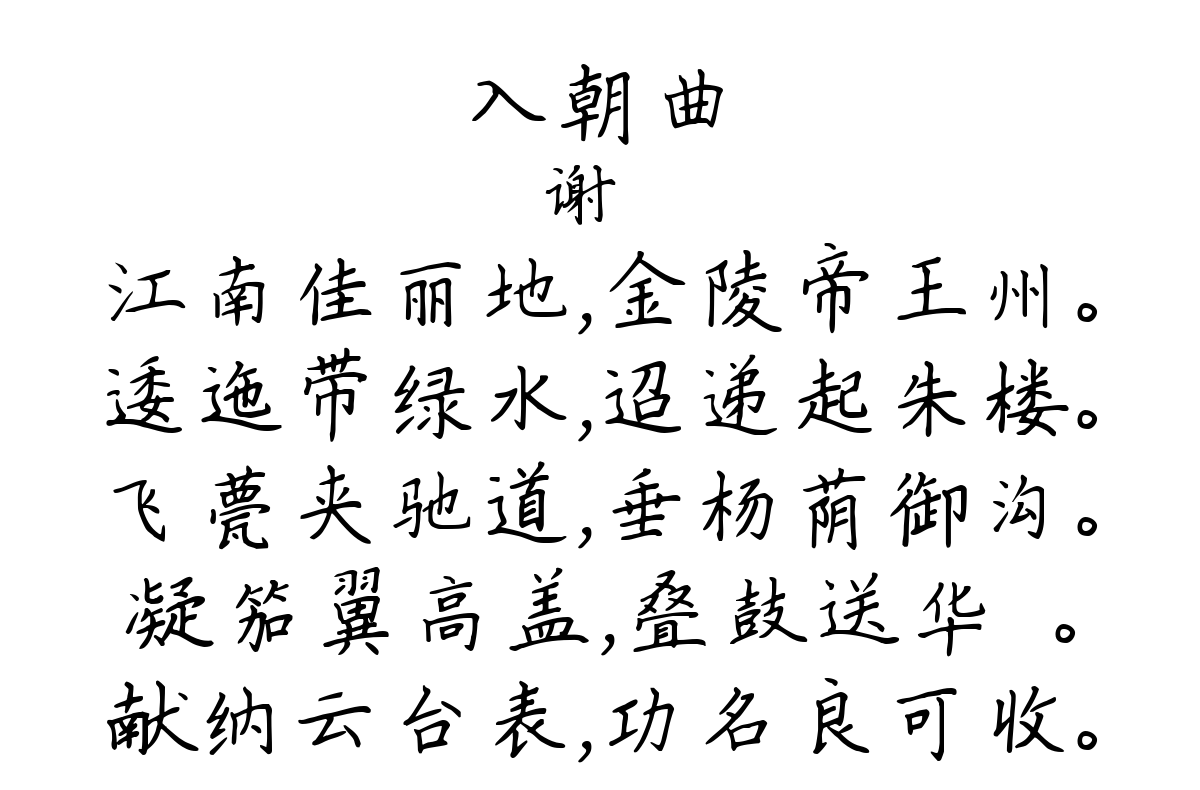 入朝曲
谢
江南佳丽地,金陵帝王州。
逶迤带绿水,迢递起朱楼。
飞甍夹驰道,垂杨荫御沟。
凝笳翼高盖,叠鼓送华 。
献纳云台表,功名良可收。